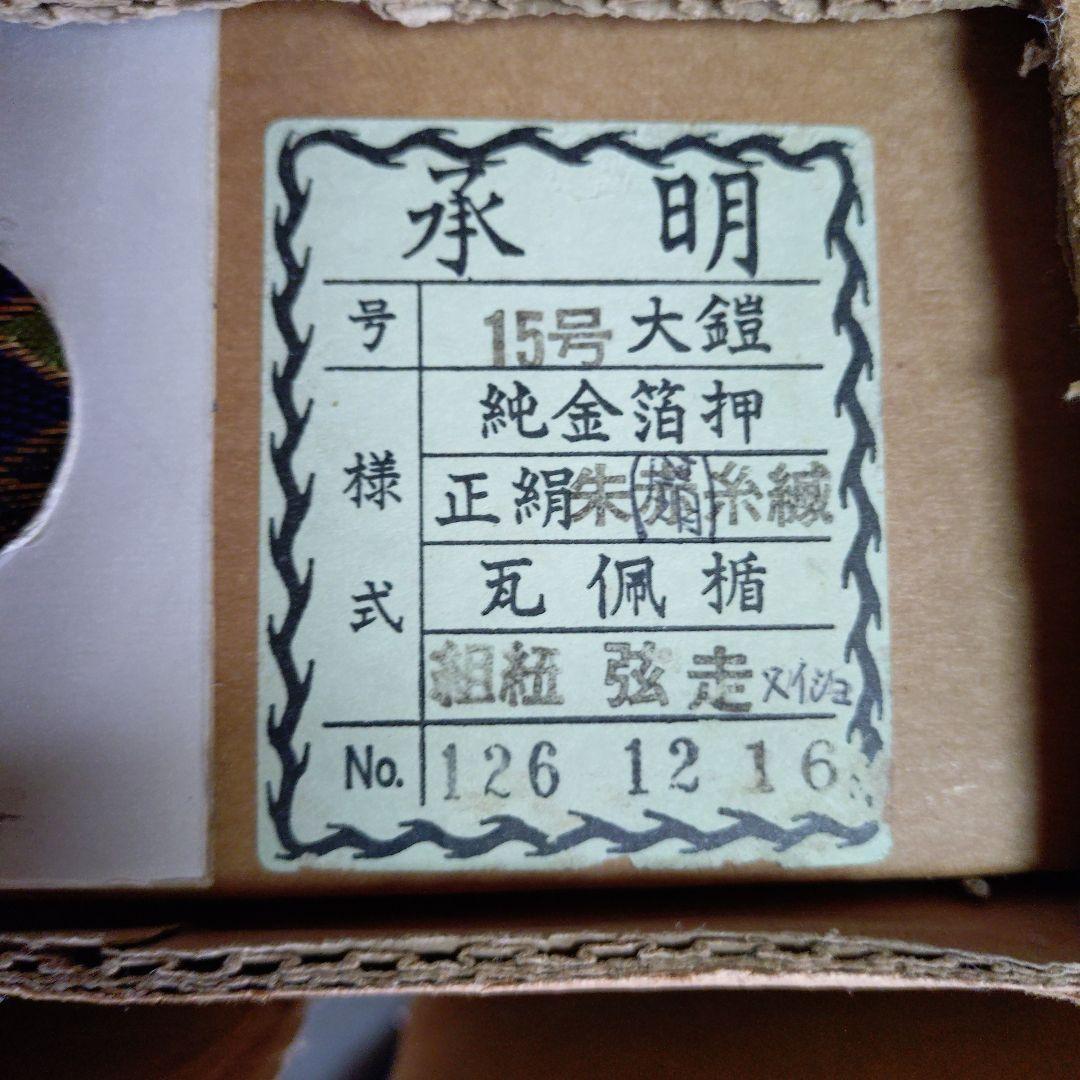 承明
号 15号 大鎧
様式
純金箔押
正絹朱赤糸縅
瓦佩楯
組紐 弦走 ヌイジュ
No. 126 12 16